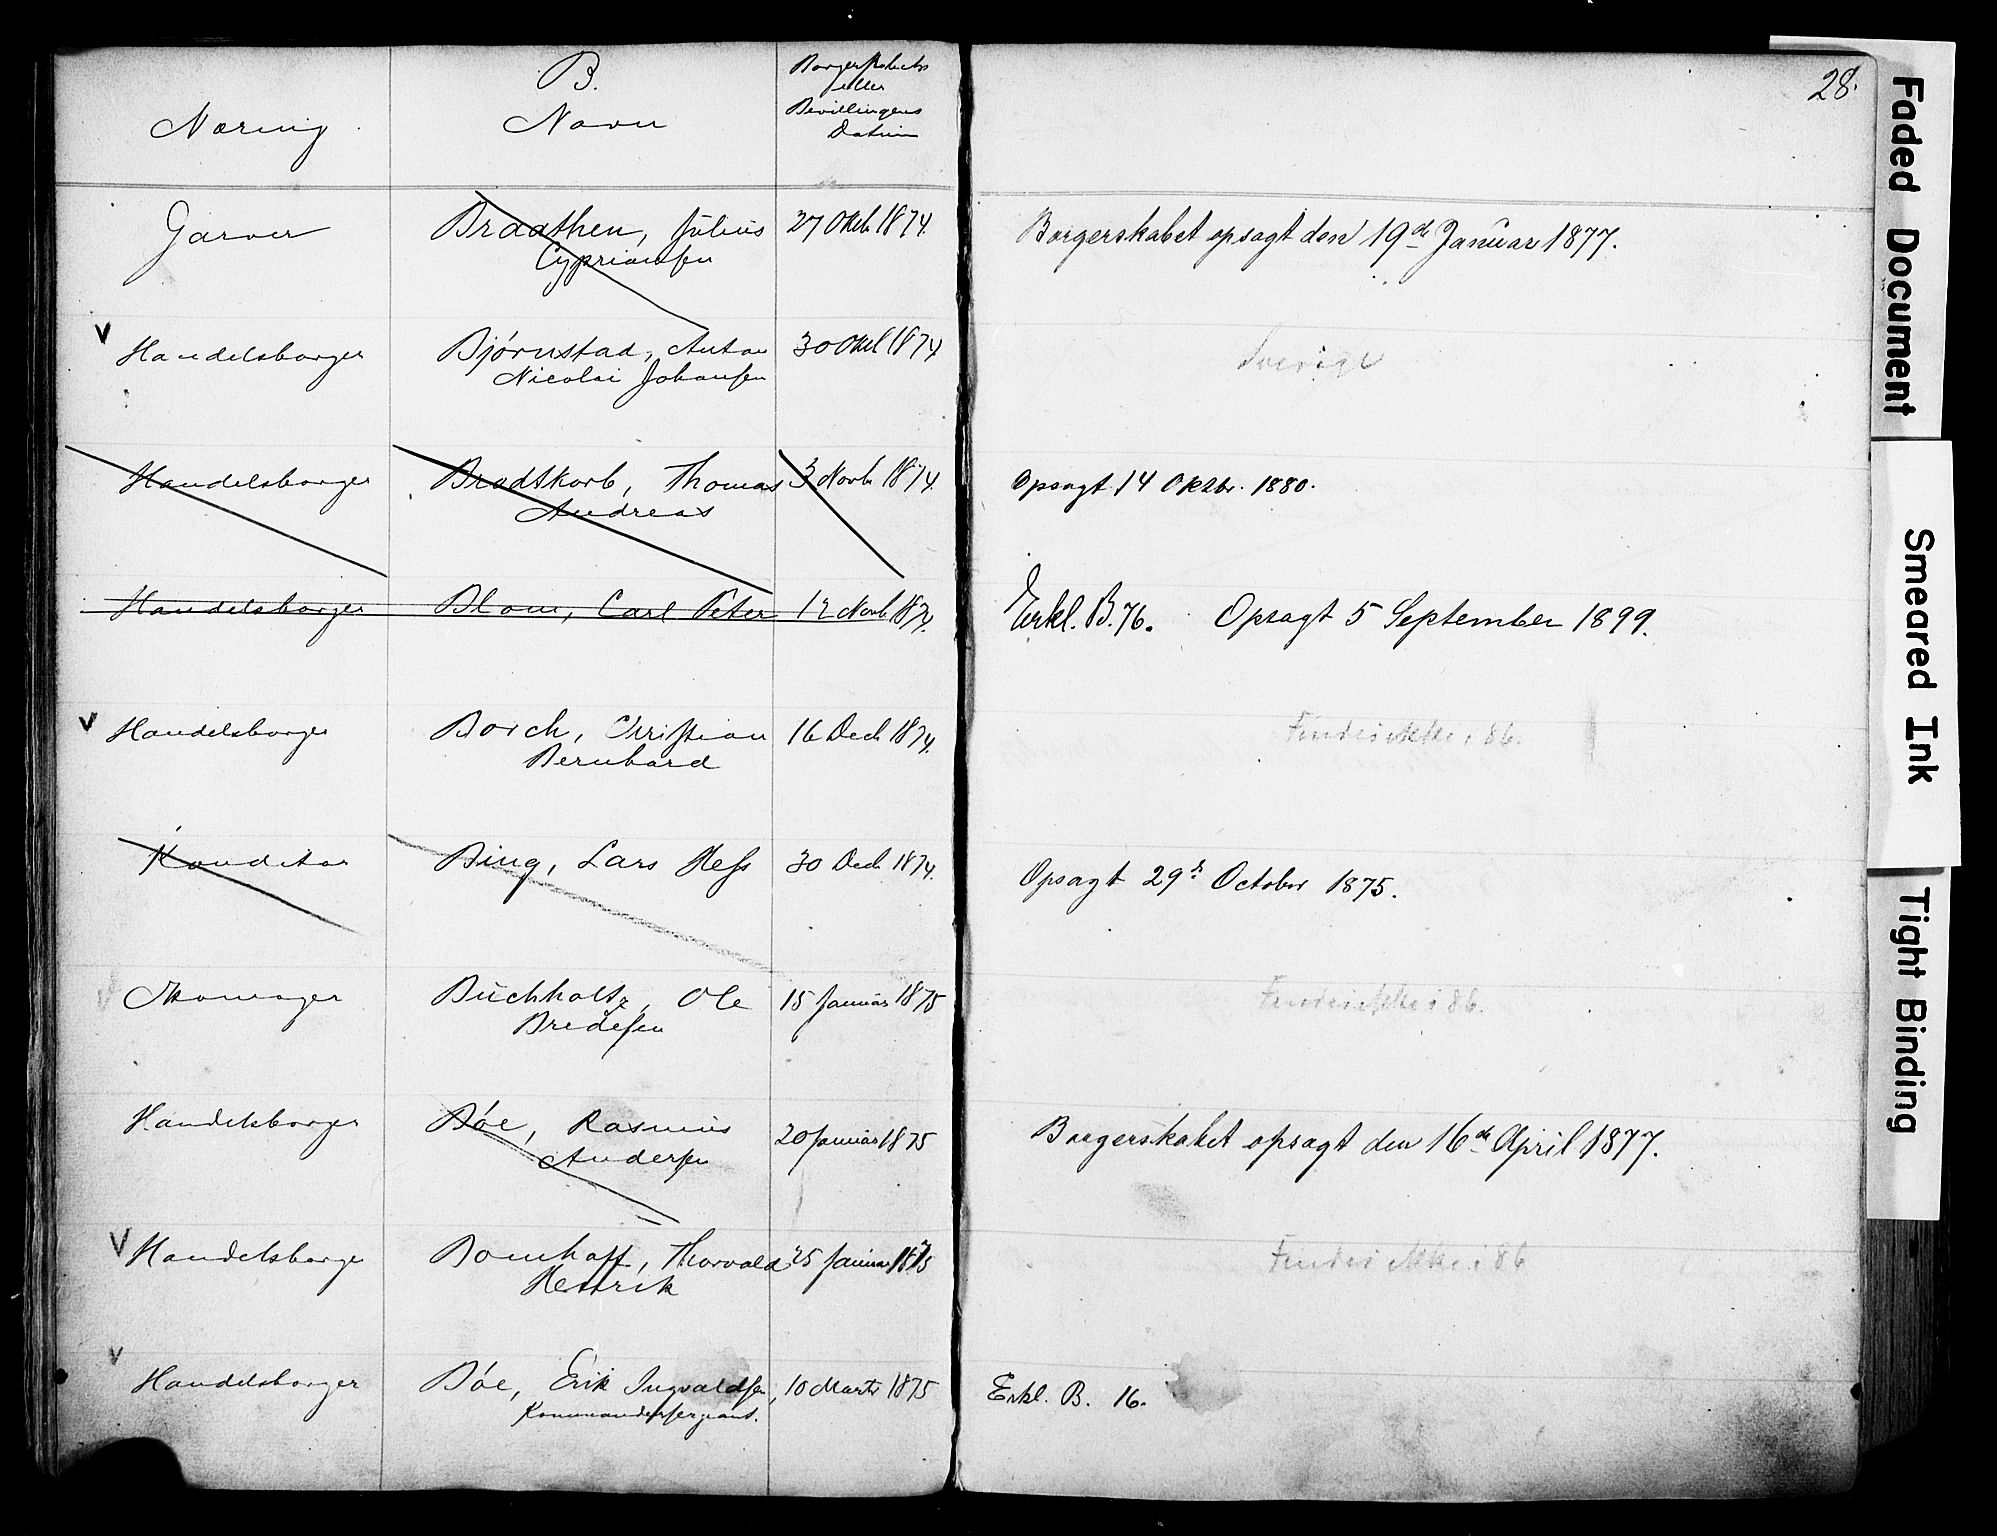 B.
28.
Næring
Navn
Borgerskabets
eller
Bevillingens
Datum
Garver
Braathen, Julius
Cypriansen
27 Oktb 1874.
Borgerskabet opsagt den 19de Januar 1877.
V
Handelsborger
Bjørnstad, Anton
Nicolai Johansen
30 Oktb 1874
Sverige
Handelsborger
Bradtkorb, Thomas
Andreas
3 Novb 1874.
Opsagt 14 Oktbr. 1880.
Handelsborger
Blom, Carl Peter
12 Novb 1874.
Erkl. B. 76. Opsagt 5 September 1899.
V
Handelsborger
Borch, Christian
Bernhard
16 Decb 1874.
Findes ikke i 86.
Konditor
Bing, Lars Hess
30 Decb 1874.
Opsagt 29de October 1875.
V
Skomager
Buchholtz, Ole
Bredesen
15 Januar 1875
Findes ikke i 86.
Handelsborger
Bøe, Rasmus
Andersen
20 Januar 1875
Borgerskabet opsagt den 16de April 1877.
V
Handelsborger
Bomhoff, Thorvald
Henrik
25 Januar 1875
Findes ikke i 86
V
Handelsborger
Bøe, Erik Ingvaldsen,
Kommandersergeant.
10 Marts 1875
Erkl. B. 16.
Faded Document
Smeared Ink
Tight Binding